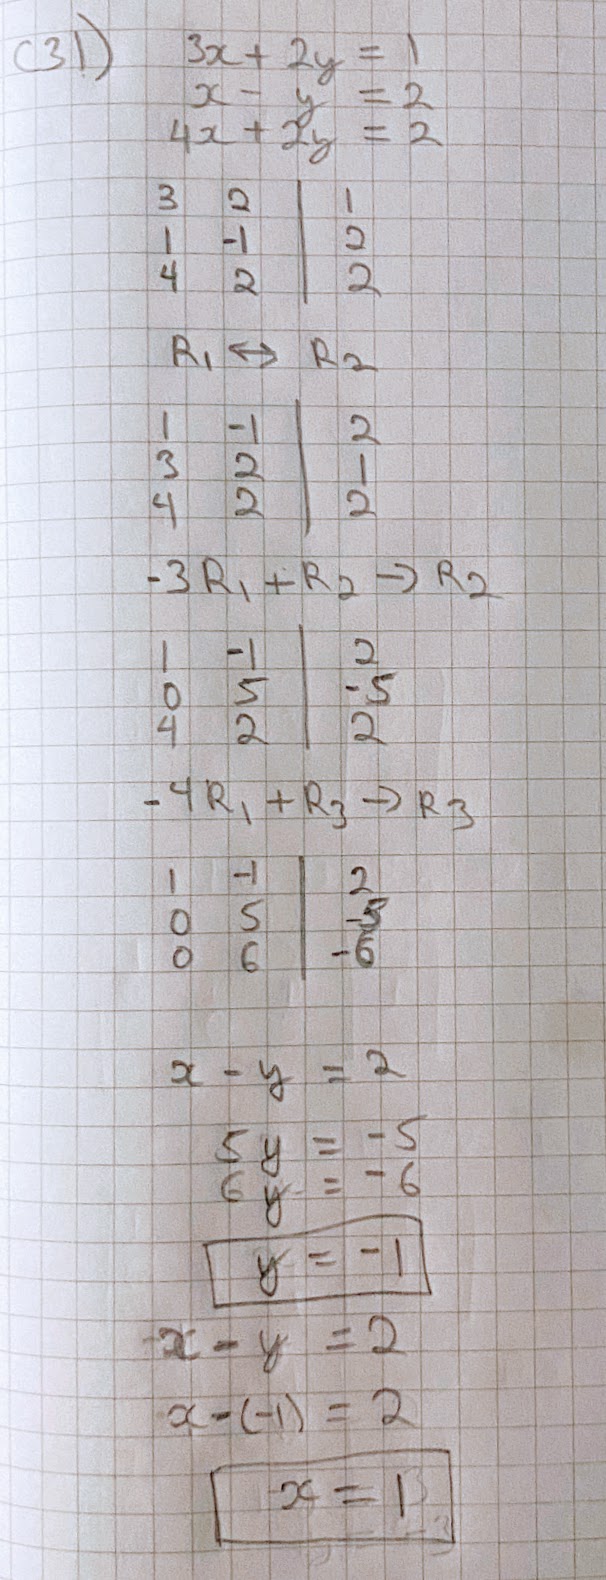 (31) 3x + 2y = 1
x - y = 2
4x + 2y = 2
3 2 | 1
1 -1 | 2
4 2 | 2
R₁ ↔ R₂
1 -1 | 2
3 2 | 1
4 2 | 2
-3R₁ + R₂ → R₂
1 -1 | 2
0 5 | -5
4 2 | 2
-4R₁ + R₃ → R₃
1 -1 | 2
0 5 | -5
0 6 | -6
x - y = 2
5y = -5
6y = -6
y = -1
x - y = 2
x - (-1) = 2
x = 1